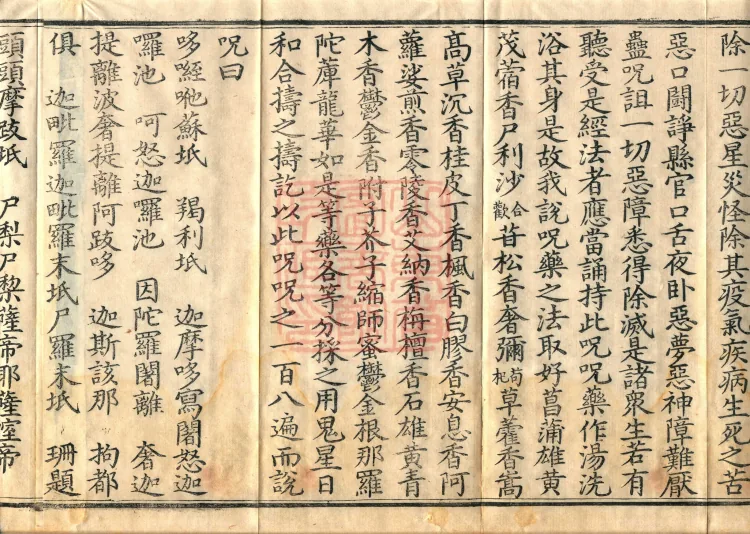 除一切惡星災怪除其疫氣疾病生死之苦
惡口鬪諍縣官口舌夜卧惡夢惡神障難厭
蠱呪詛一切惡障悉得除滅是諸衆生若有
聽受是經法者應當誦持此呪呪藥作湯洗
浴其身是故我說呪藥之法取好菖蒲雄黄
茂蓿香尸利沙合歡苷松香奢彌茍杞草藿香嵩
髙草沉香桂皮丁香楓香白膠香安息香阿
蘿娑煎香零陵香艾納香栴檀香石雄黄青
木香鬱金香附子芥子縮師蜜鬱金根那羅
陀葷龍華如是等藥各等分採之用鬼星日
和合擣之擣訖以此呪呪之一百八遍而說
呪曰
哆經咃蘇坻 羯利坻 迦摩哆寫闍怒迦
囉池 呵怒迦囉池 因陀羅闍離 奢迦
提離波奢提離阿跋哆 迦斯該那 拘都
俱 迦毗羅迦毗羅末坻尸羅末坻 珊題
頭頭摩跋坻 尸梨尸梨薩帝耶薩窒帝